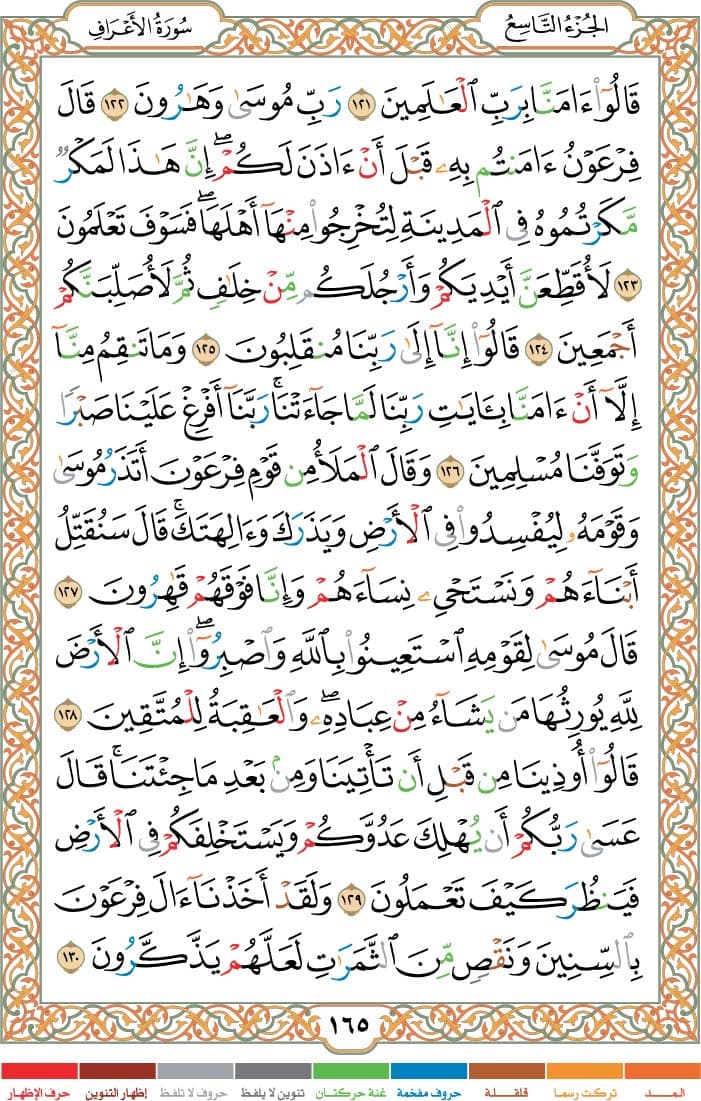 سُورَةُ الأَعْرَافِ
الجُزْءُ التَّاسِعُ
قَالُوٓا۟ ءَامَنَّا بِرَبِّ ٱلْعَـٰلَمِينَ ١٢١ رَبِّ مُوسَىٰ وَهَـٰرُونَ ١٢٢ قَالَ
فِرْعَوْنُ ءَامَنتُم بِهِۦ قَبْلَ أَنْ ءَاذَنَ لَكُمْ ۖ إِنَّ هَـٰذَا لَمَكْرٌ
مَّكَرْتُمُوهُ فِى ٱلْمَدِينَةِ لِتُخْرِجُوا۟ مِنْهَآ أَهْلَهَا ۖ فَسَوْفَ تَعْلَمُونَ
١٢٣ لَأُقَطِّعَنَّ أَيْدِيَكُمْ وَأَرْجُلَكُم مِّنْ خِلَـٰفٍ ثُمَّ لَأُصَلِّبَنَّكُمْ
أَجْمَعِينَ ١٢٤ قَالُوٓا۟ إِنَّآ إِلَىٰ رَبِّنَا مُنقَلِبُونَ ١٢٥ وَمَا تَنقِمُ مِنَّآ
إِلَّآ أَنْ ءَامَنَّا بِـَٔايَـٰتِ رَبِّنَا لَمَّا جَآءَتْنَا ۚ رَبَّنَآ أَفْرِغْ عَلَيْنَا صَبْرًا
وَتَوَفَّنَا مُسْلِمِينَ ١٢٦ وَقَالَ ٱلْمَلَأُ مِن قَوْمِ فِرْعَوْنَ أَتَذَرُ مُوسَىٰ
وَقَوْمَهُۥ لِيُفْسِدُوا۟ فِى ٱلْأَرْضِ وَيَذَرَكَ وَءَالِهَتَكَ ۚ قَالَ سَنُقَتِّلُ
أَبْنَآءَهُمْ وَنَسْتَحْىِۦ نِسَآءَهُمْ وَإِنَّا فَوْقَهُمْ قَـٰهِرُونَ ١٢٧
قَالَ مُوسَىٰ لِقَوْمِهِ ٱسْتَعِينُوا۟ بِٱللَّهِ وَٱصْبِرُوٓا۟ ۖ إِنَّ ٱلْأَرْضَ
لِلَّهِ يُورِثُهَا مَن يَشَآءُ مِنْ عِبَادِهِۦ ۖ وَٱلْعَـٰقِبَةُ لِلْمُتَّقِينَ ١٢٨
قَالُوٓا۟ أُوذِينَا مِن قَبْلِ أَن تَأْتِيَنَا وَمِنۢ بَعْدِ مَا جِئْتَنَا ۚ قَالَ
عَسَىٰ رَبُّكُمْ أَن يُهْلِكَ عَدُوَّكُمْ وَيَسْتَخْلِفَكُمْ فِى ٱلْأَرْضِ
فَيَنظُرَ كَيْفَ تَعْمَلُونَ ١٢٩ وَلَقَدْ أَخَذْنَآ ءَالَ فِرْعَوْنَ
بِٱلسِّنِينَ وَنَقْصٍ مِّنَ ٱلثَّمَرَٰتِ لَعَلَّهُمْ يَذَّكَّرُونَ ١٣٠
١٦٥
المــد تركت رسما قلقلة حروف مفخمة غنة حركتان تنوين لا يلفظ حروف لا تلفظ إظهار التنوين حرف الإظهار